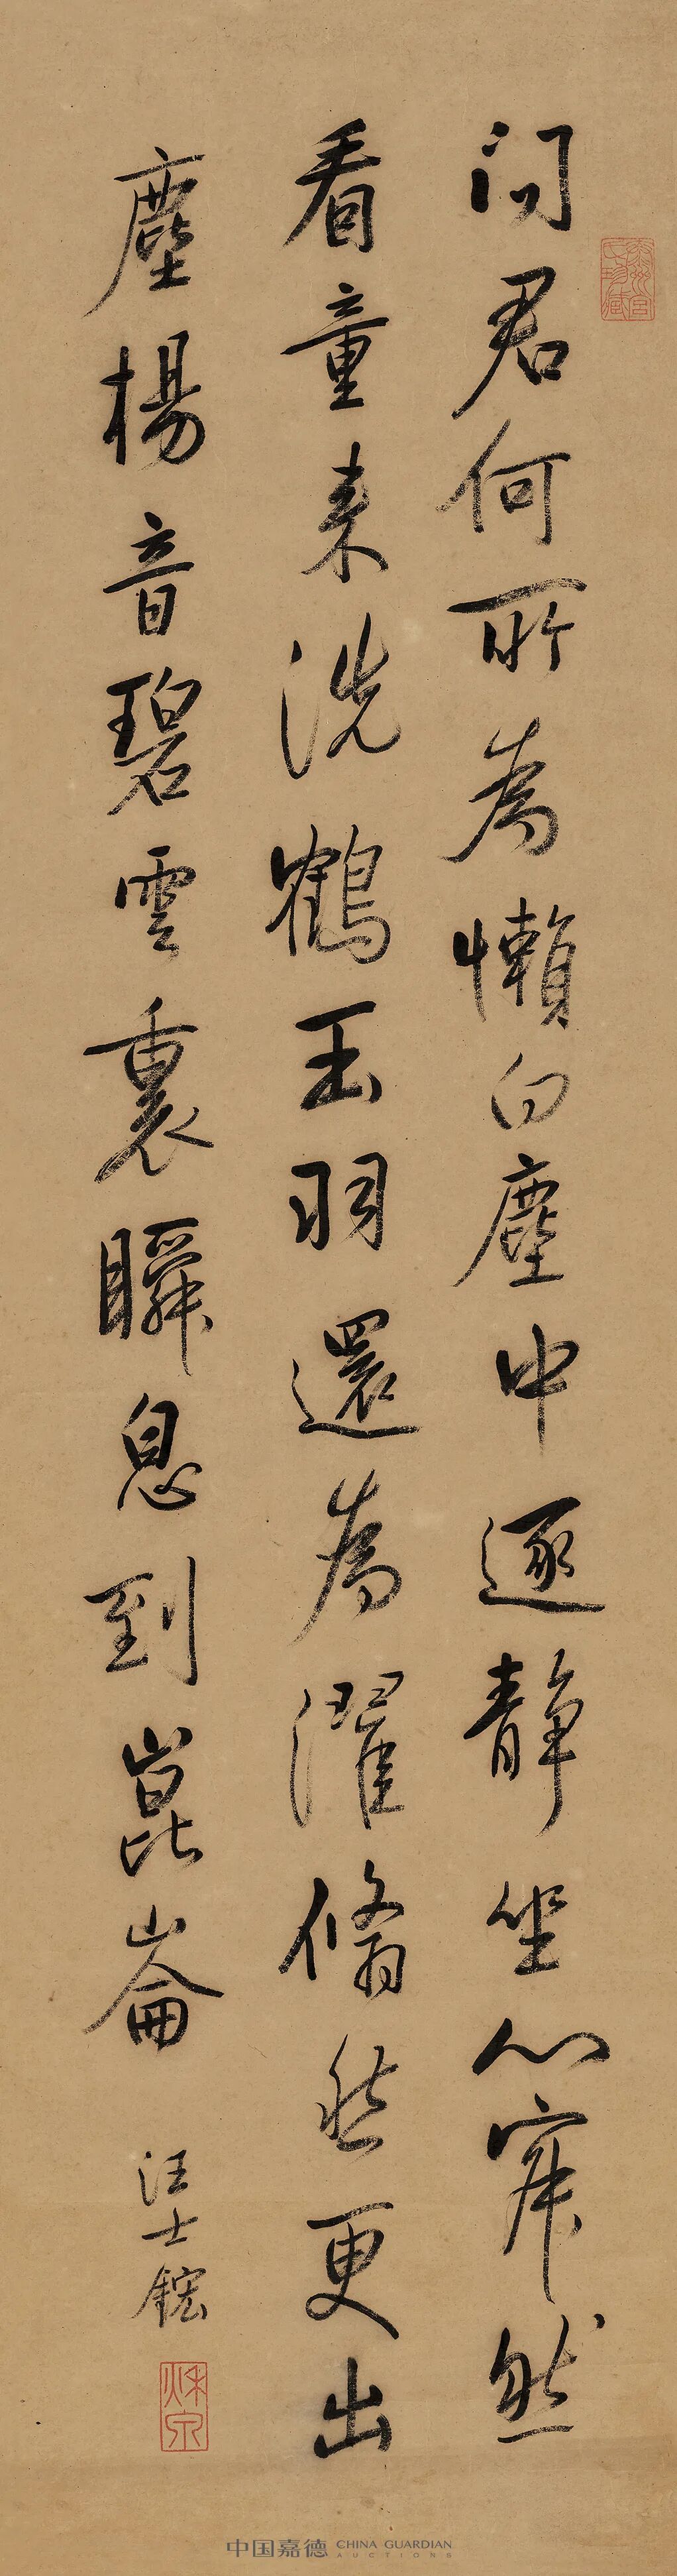 问君何所為懒向塵中逐静坐心寂然
看童来洗鶴玉羽還為濯翛然更出
塵楊音碧雲裏瞬息到崑崙
汪士鋐
秋泉
中国嘉德 CHINA GUARDIAN
AUCTIONS